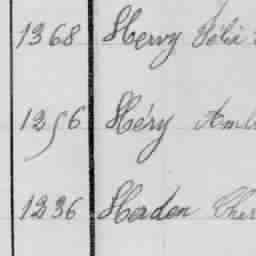 1368 Hervy Félix
1256 Héry Amb
1236 Hesdon Cher